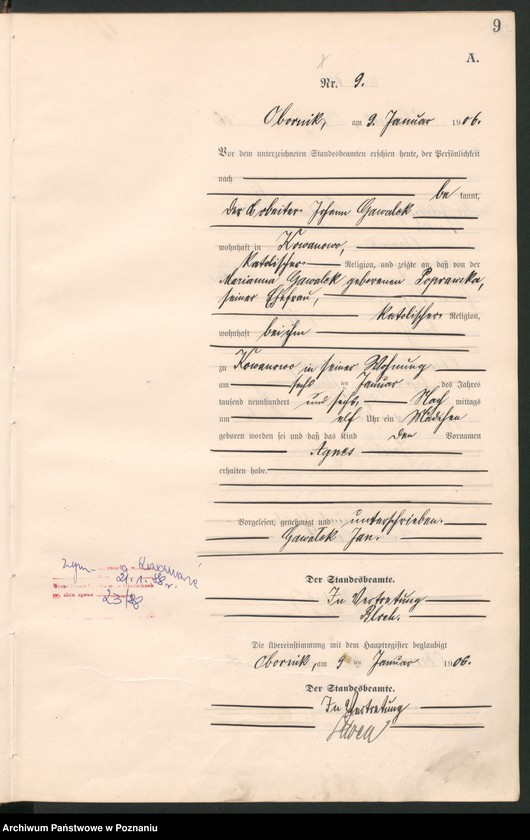 9
A.
Nr. 9.
Obornik, am 9. Januar 1906.
Vor dem unterzeichneten Standesbeamten erschien heute, der Persönlichkeit
nach
be kannt,
der Arbeiter Johann Gawalek
wohnhaft in Kowanowo,
katolischer Religion, und zeigte an, daß von der
Marianna Gawalek geborenen Poprawska,
seiner Ehefrau,
katolischer Religion,
wohnhaft bei ihm
zu Kowanowo in seiner Wohnung
am sechs ten Januar des Jahres
tausend neunhundert und sechs, Nach mittags
um elf Uhr ein Mädchen
geboren worden sei und daß das Kind den Vornamen
Agnes
erhalten habe.
Vorgelesen, genehmigt und unterschrieben.
Gawałek Jan.
Der Standesbeamte.
In Vertretung
Die Übereinstimmung mit dem Hauptregister beglaubigt
Obornik, am 9 ten Januar 1906.
Der Standesbeamte.
In Vertretung
21.1.88r.
23/88
Archiwum Państwowe w Poznaniu